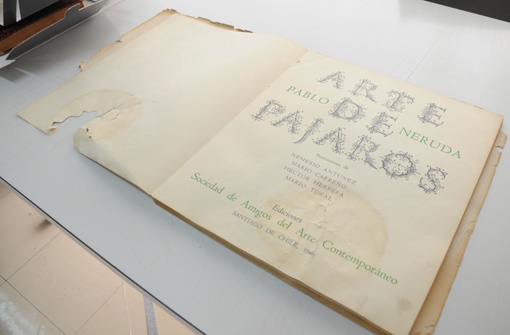 ARTE
PABLO DE NERUDA
PAJAROS
Ilustraciones de
NEMESIO ANTUNEZ
MARIO CARREÑO
HECTOR HERRERA
MARIO TORAL
Ediciones
Sociedad de Amigos del Arte Contemporáneo
SANTIAGO DE CHILE, 1966